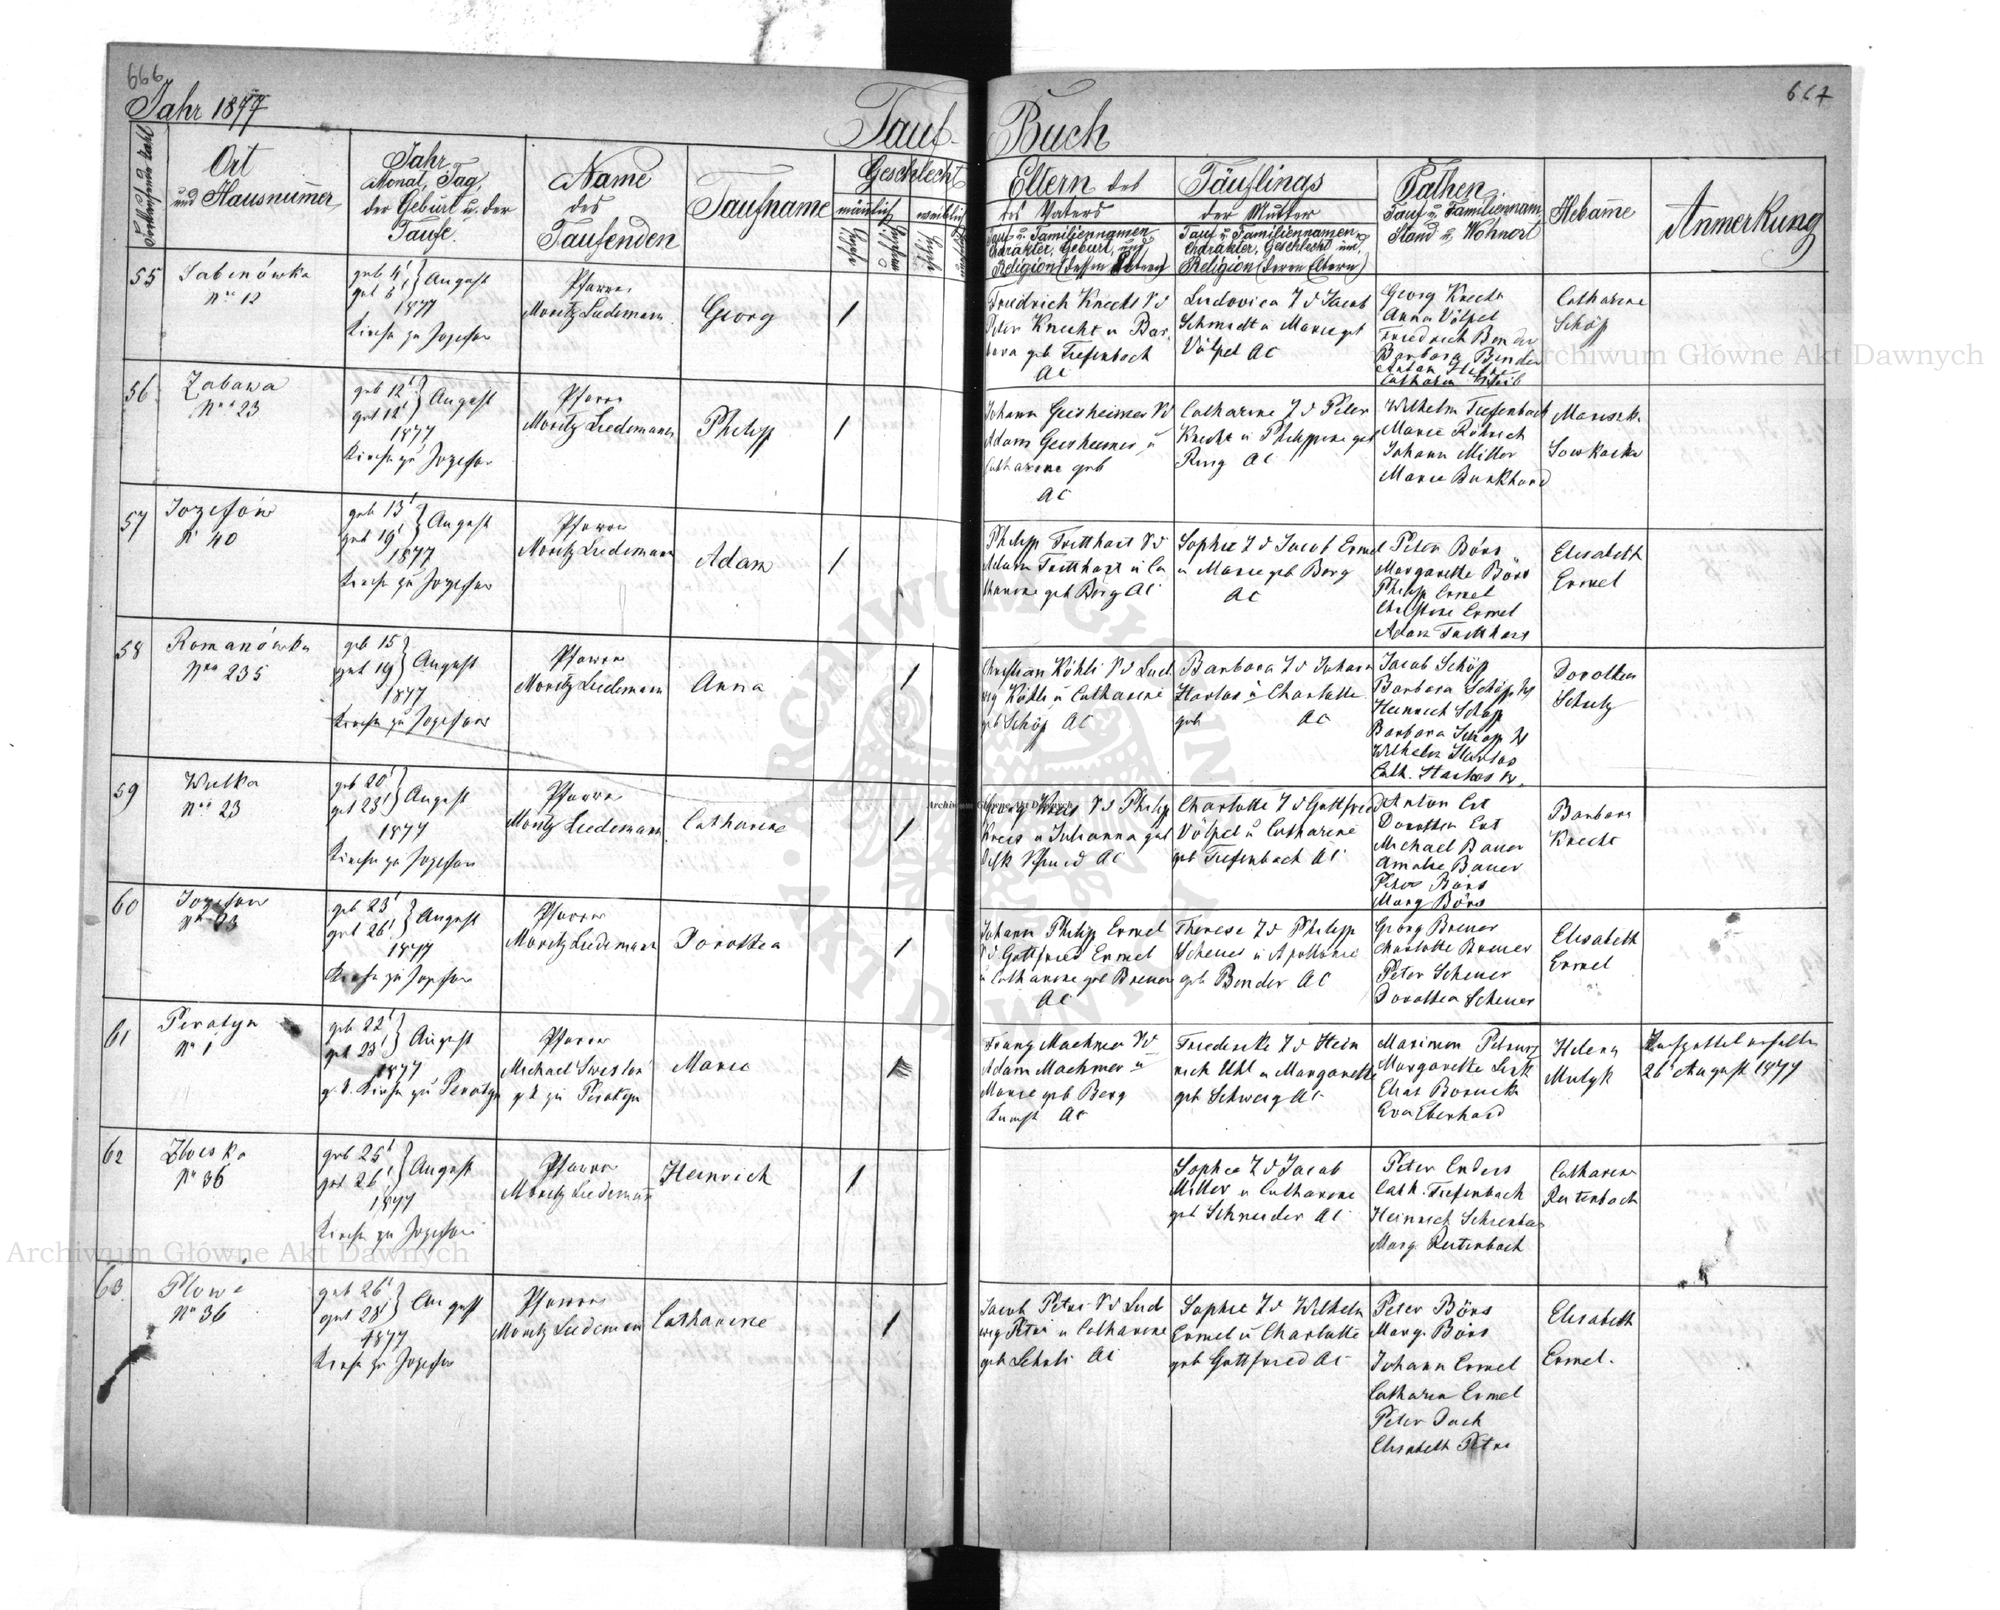 666
Jahr 1877
Tauf-
Buch
667
Ort
und Hausnummer
Jahr
Monat, Tag,
der Geburt u. der
Taufe.
Name
des
Taufenden
Taufname
Geschlecht
männlich
weiblich
Eltern des
Täuflings
des Vaters
der Mutter
Tauf u. Familiennamen,
Charakter, Geburt, und
Religion (dessen Eltern)
Tauf u. Familiennamen,
Charakter, Geschlecht und
Religion (deren Eltern)
Pathen
Tauf u. Familiennam
Stand u. Wohnort
Hebame
Anmerkung
55
Sabinówka
Nro 12
geb 4
get 6
August
1877
Kirche zu Jozefow
Pfarrer
Moritz Liedemann
Georg
1
Friedrich Knecht
Peter Knecht u Bar-
bara geb Tiefenbach
AC
Ludovica T d Jacob
Schmidt u Marie geb
Völpel AC
Georg Knecht
Anna Völpel
Friedrich Bender
Barbara Bender
Catharine
Schöp
56
Zabawa
Nro 23
geb 12
get 12
August
1877
Kirche zu Jozefow
Pfarrer
Moritz Liedemann
Philipp
1
Johann Geisheimer
Adam Geisheimer u
Catharine geb
AC
Catharine T d Peter
Knecht u Philippine geb
Ring AC
Wilhelm Tiefenbach
Marie Röhrich
Johann Miller
Marie Burkhard
57
Jozefów
N 40
geb 13
get 19
August
1877
Kirche zu Jozefow
Pfarrer
Moritz Liedemann
Adam
1
Philipp Tritthart
Adam Tritthart u Ca
tharine geb Berg AC
Sophie T d Jacob Ermel
u Marie geb Berg
AC
Peter Börs
Margarethe Börs
Philipp Ermel
Christine Ermel
Adam Tritthart
Elisabeth
Ermel
58
Romanówka
Nro 235
geb 15
get 19
August
1877
Kirche zu Jozefow
Pfarrer
Moritz Liedemann
Anna
1
Christian Köhli S d Lud
wig Köhli u Catharine
geb Schöp AC
Barbara T d Johann
Harlos u Charlotte
geb AC
Jacob Schöp
Barbara Schöp
Heinrich Schöp
Barbara Schöp
Wilhelm Harlos
Cath. Harlos
Dorothea
Schutz
59
Wulka
Nro 23
geb 20
get 23
August
1877
Kirche zu Jozefow
Pfarrer
Moritz Liedemann
Catharine
1
Georg Kreis S d Philipp
Kreis u Julianna geb
Charlotte T d Gottfried
Völpel u Catharine
geb Tiefenbach AC
Anton Ert
Dorothea Ert
Michael Bauer
Amalie Bauer
Peter Börs
Marg Börs
Barbara
Knecht
60
Jozefow
geb 23
get 26
August
1877
Kirche zu Jozefow
Pfarrer
Moritz Liedemann
Dorothea
1
Johann Philipp Ermel
S d Gottfried Ermel
u Catharine geb Breuer
AC
Therese T d Philipp
Scheuer u Apollonie
geb Bender AC
Georg Breuer
Charlotte Breuer
Peter Scheuer
Dorothea Scheuer
Elisabeth
Ermel
61
Peratyn
N 1
geb 22
get 23
August
1877
g. k. Kirche zu Peratyn
Pfarrer
Michael
g k zu Peratyn
Marie
1
Franz Machmer
Adam Machmer u
Marie geb Berg
AC
Friedericke T d Hein
rich Uhl u Margarethe
geb Schweig AC
Margarethe
Eva Eberhard
Helena
Mulyk
26 August 1877
62
N 36
geb 25
get 26
August
1877
Kirche zu Jozefow
Pfarrer
Moritz Liedemann
Heinrich
1
Sophie T d Jacob
Miller u Catharine
geb Schneider AC
Peter Enders
Cath. Tiefenbach
Heinrich
Marg. Reitenbach
Catharine
Reitenbach
63
Plowe
N 36
geb 26
get 28
August
1877
Kirche zu Jozefow
Pfarrer
Moritz Liedemann
Catharine
1
Jacob Petri S d Lud
wig Petri u Catharine
geb AC
Sophie T d Wilhelm
Ermel u Charlotte
geb Gottfried AC
Peter Börs
Marg. Börs
Johann Ermel
Catharin Ermel
Peter
Elisabeth Petri
Elisabeth
Ermel.
Archiwum Główne Akt Dawnych
Archiwum Główne Akt Dawnych
Archiwum Główne Akt Dawnych
ARCHIWUM GŁÓWNE AKT DAWNYCH